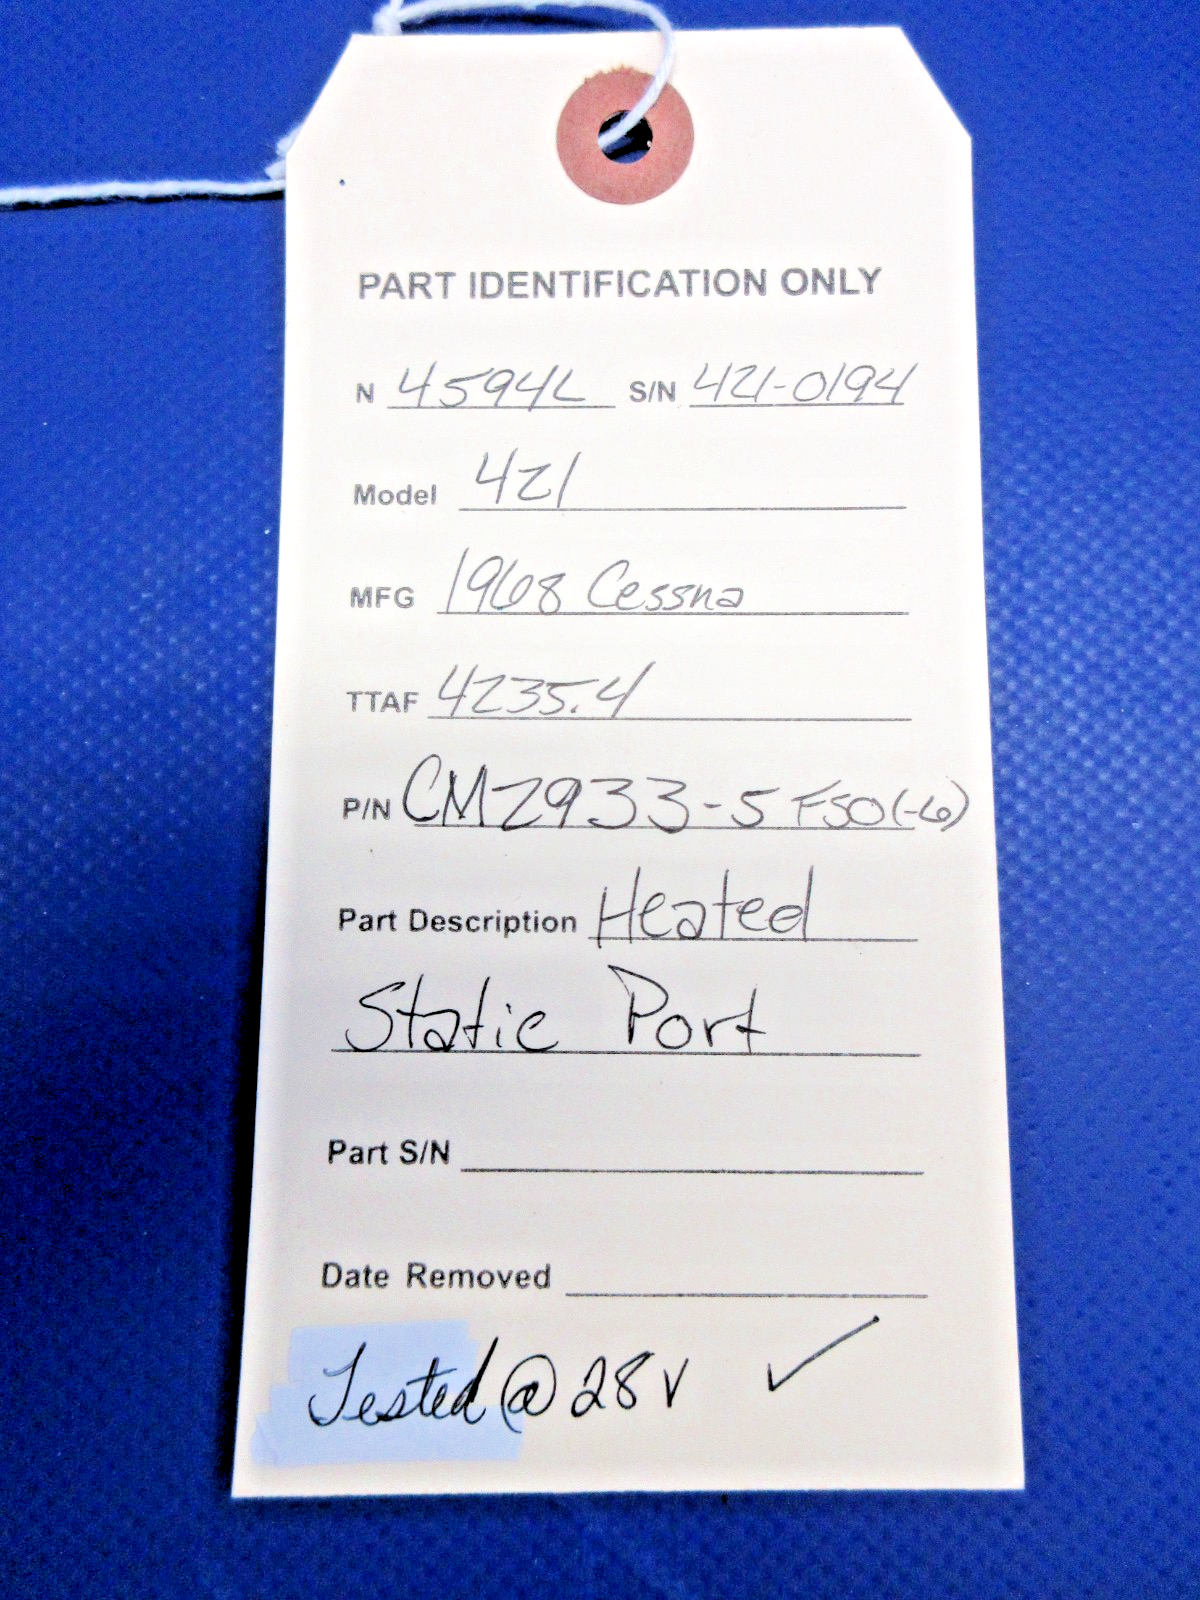 PART IDENTIFICATION ONLY
N 4594L S/N 421-0194
Model 421
MFG 1968 Cessna
TTAF 4235.4
P/N CM2933-5 FSO(-6)
Part Description Heated
Static Port
Part S/N
Date Removed
Tested @ 28V ✓